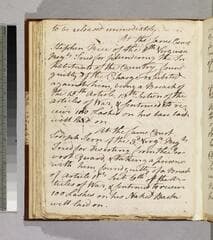 to be released immediately.
At the Same Court
Stephen of the 6th Virginia
Regt. Tried for plundering the In-
habitants of the Country, found
guilty of the Charge exhibited
against him, being a Breach of
the Article, 13th of the
articles of War, & sentenced to re-
ceive 100 Lashes on his bare back
well laid on.
At the Same Court
Joseph of the 3d Regt.
Tried for deserting from the Pro-
vost Guard & taking a prisoner
with him found guilty of a Breach
of article 1st Sect. 6th of the ar-
ticles of War, & sentenced to receive
100 Lashes on his Naked Back
well laid on.